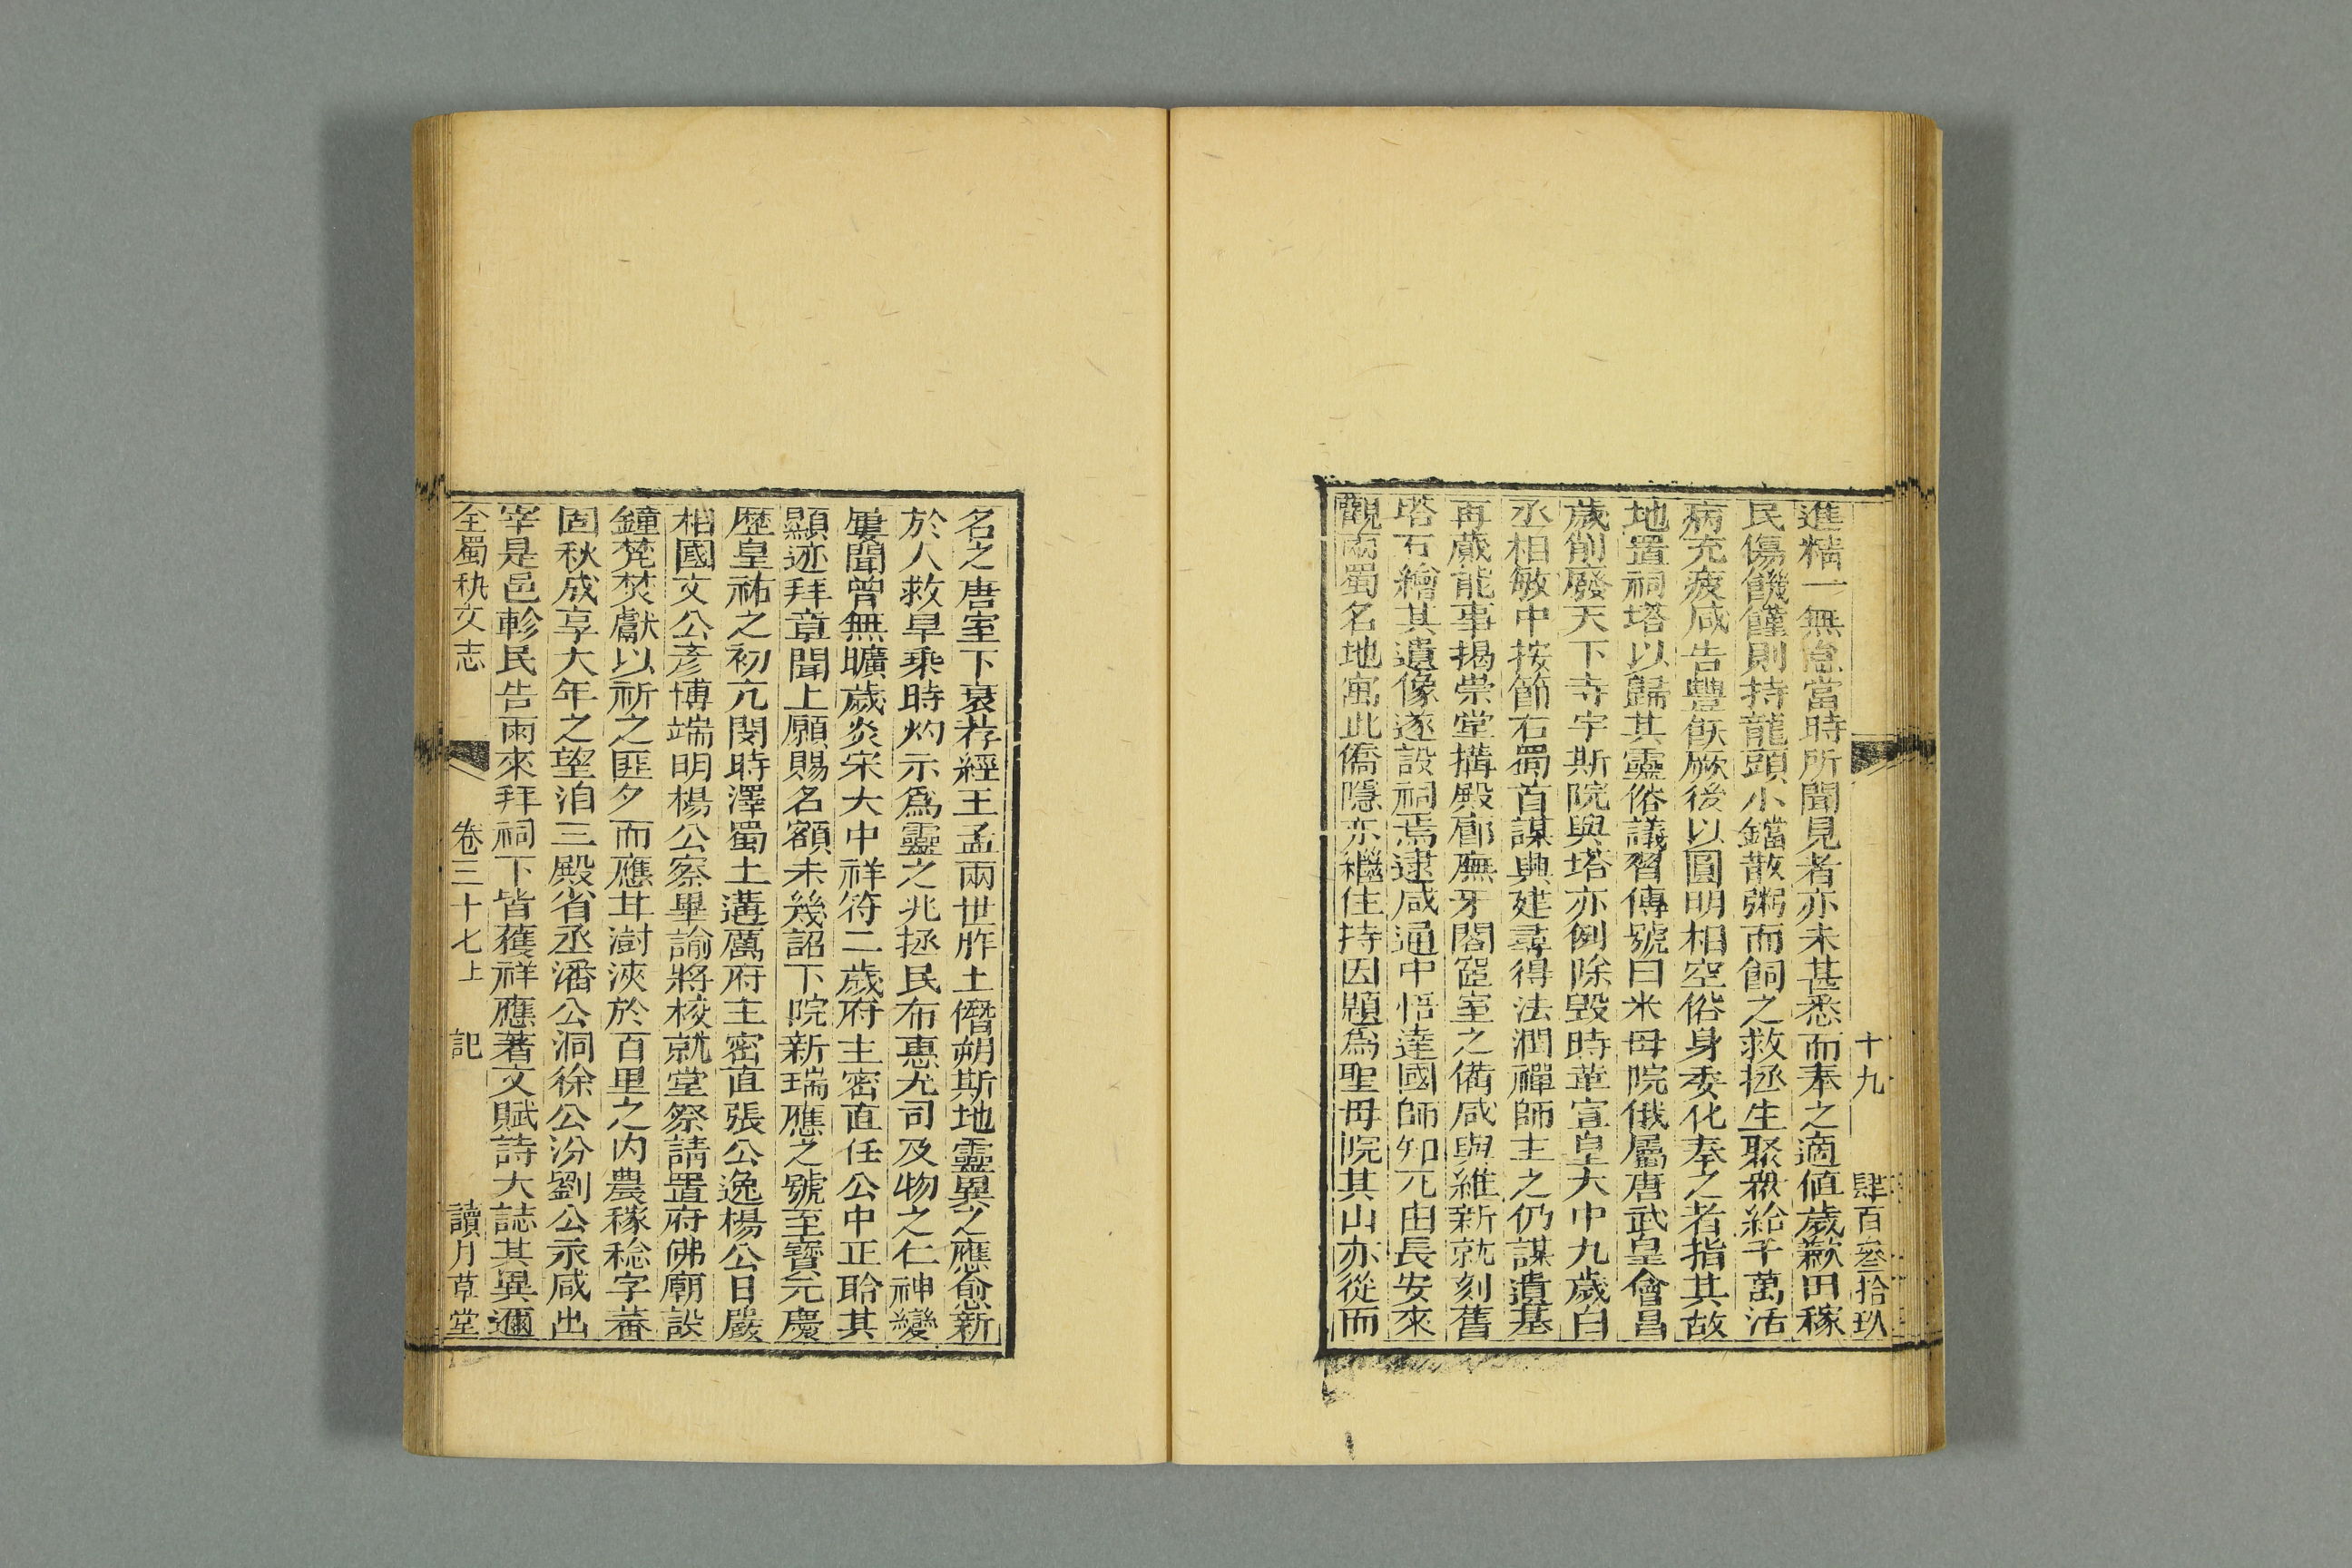 十九 肆百叁拾玖
進精一無怠當時所聞見者亦未甚悉而奉之適值歲歉田稼
民傷饑饉則持龍頭小鐺散粥而飼之救拯生聚衆給千萬活
病充疲咸告豐飫厥後以圓明相空俗身委化奉之者指其故
地置祠塔以歸其靈俗議習傳號曰米母院俄屬唐武皇會昌
歲削廢天下寺宇斯院與塔亦例除毀時華宣皇大中九歲白
丞相敏中按節右蜀首謀典建尋得法潤禪師主之仍謀遺基
再蕆能事揭崇堂搆殿廊廡牙閣窒室之備咸與維新就刻舊
塔石繪其遺像遂設祠焉逮咸通中悟達國師知元由長安來
觀兩蜀名地寓此僑隱亦繼住持因題爲聖母院其山亦從而
名之唐室下衰荐經王孟兩世胙土僭朔斯地靈異之應愈新
於人救旱乘時灼示爲靈之兆拯民布惠尤司及物之仁神變
屢聞曾無曠歲炎宋大中祥符二歲府主密直任公中正聆其
顯迹拜章聞上願賜名額未幾詔下院新瑞應之號至寶元慶
歷皇祐之初亢閔時澤蜀土遘厲府主密直張公逸楊公日嚴
相國文公彥博端明楊公察畢諭將校就堂祭請置府佛廟設
鐘梵焚獻以祈之匪夕而應甘澍浹於百里之内農稼稔字蕃
固秋成享大年之望洎三殿省丞潘公洞徐公汾劉公永咸出
宰是邑軫民告雨來拜祠下皆蒦祥應著文賦詩大誌其異邇
全蜀秇文志 卷三十七上 記 讀月草堂